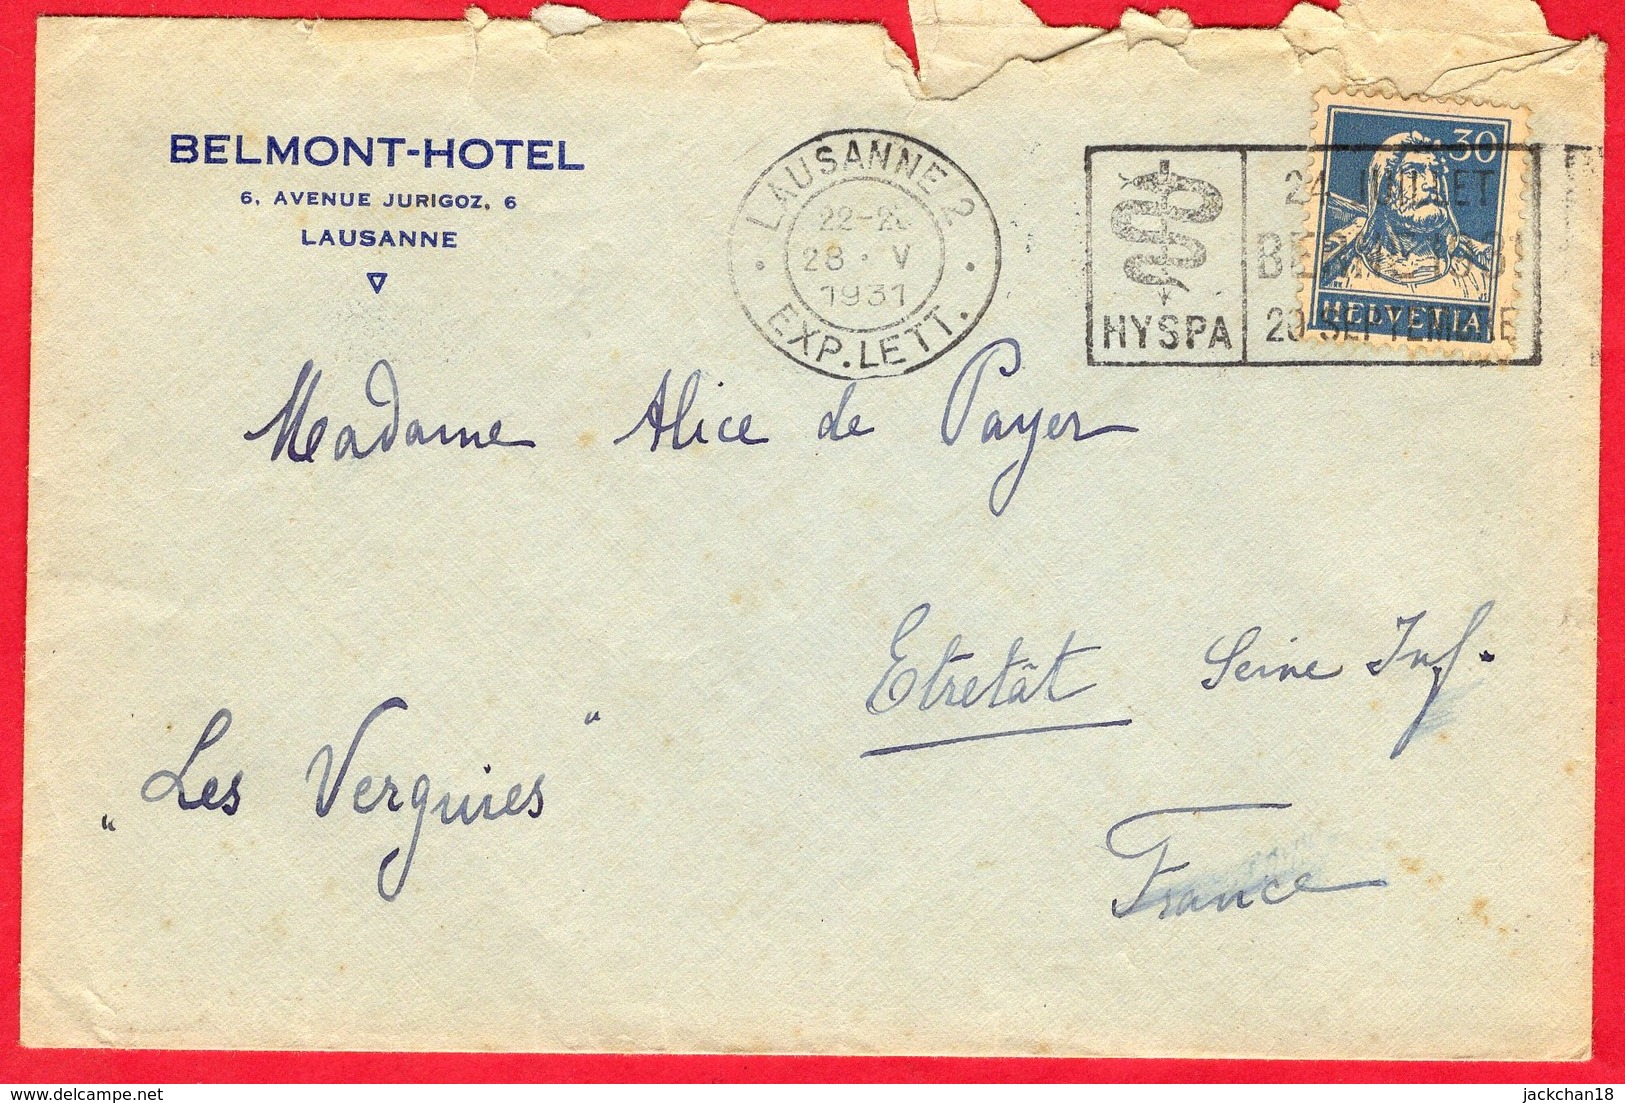 BELMONT-HOTEL
6, AVENUE JURIGOZ, 6
LAUSANNE
LAUSANNE 2
28 · V
1931
EXP. LETT.
HYSPA
24 JUILLET
BERNE 1931
20 SEPTEMBRE
30
HELVETIA
Madame Alice de Payer
Etretât Seine Inf.
„Les Verguies“
France
jackchan18